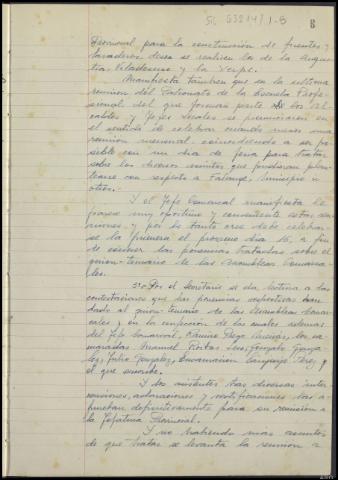 8
Provincial para la construcción de fuentes y
lavaderos, desea se realicen los de la
Viladesuso y la
Manifiesta también que en la última
reunión del Patronato de la Escuela Profe-
sional del que forman parte los Al-
caldes y Jefes Locales se pronunciaron en
el sentido de celebrar cuando menos una
reunión mensual, coincidiendo a ser po-
sible con un día de feria para tratar
sobre los diversos asuntos que pudieran plan-
tearse con respecto a Falange, Municipio u
otros.
Y el Jefe Comarcal manifiesta le
parece muy oportuno y conveniente estas reu-
niones y por lo tanto cree debe celebrar-
se la primera el próximo día 16, a fin
de estudiar las ponencias tratadas sobre el
guión-temario de las Asambleas Comarca-
les.
5º Por el Secretario se da lectura a las
contestaciones que las ponencias respectivas han
dado al guión-temario de las Asambleas Comar-
cales y en la confección de las cuales además
del Jefe Comarcal, Ramiro los ca-
maradas Manuel González Gonzá-
lez, Julio González, Encarnación Pérez y
el que suscribe.
Y los asistentes tras diversas inter-
venciones, aclaraciones y rectificaciones las a-
prueban definitivamente para su remisión a
la Jefatura Provincial.
Y no habiendo más asuntos
de que tratar se levanta la reunión a